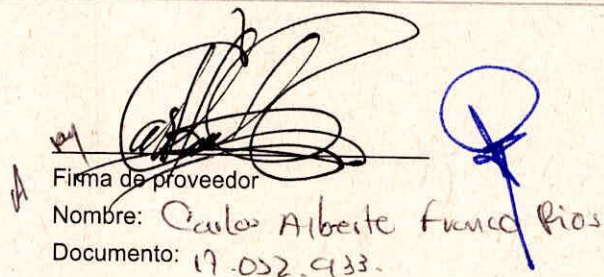 Firma de proveedor
Nombre: Carlos Alberto Franco Rios
Documento: 17.032.933.